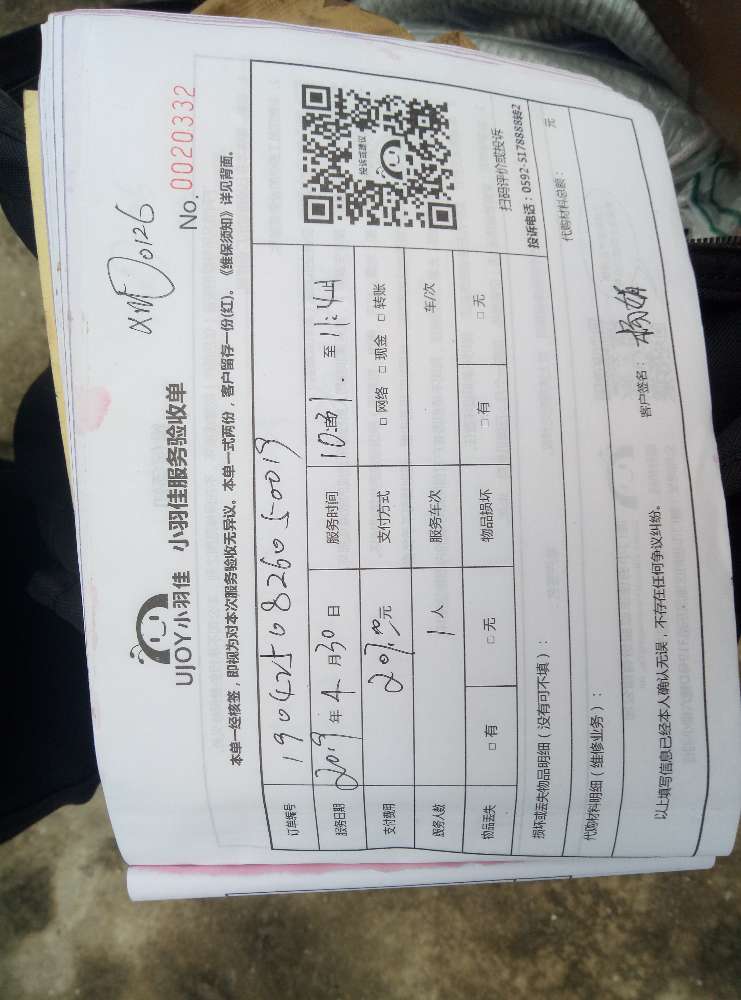 XMD0126
UJOY小羽佳 小羽佳服务验收单
No. 0020332
本单一经核签，即视为对本次服务验收无异议。本单一式两份，客户留存一份(红)。《维保须知》详见背面。
订单编号
服务日期 2019 年 4 月 30 日 服务时间 至
支付费用 元 支付方式 □ 网络 □ 现金 □ 转账
服务人数 1 人 服务车次 车/次
物品丢失 □ 有 □ 无 物品损坏 □ 有 □ 无
投诉或建议
扫码评价或投诉
投诉电话：0592-5178888转2
损坏或丢失物品明细（没有可不填）：
代购材料明细（维修业务）： 代购材料总额： 元
以上填写信息已经本人确认无误，不存在任何争议纠纷。 客户签名：